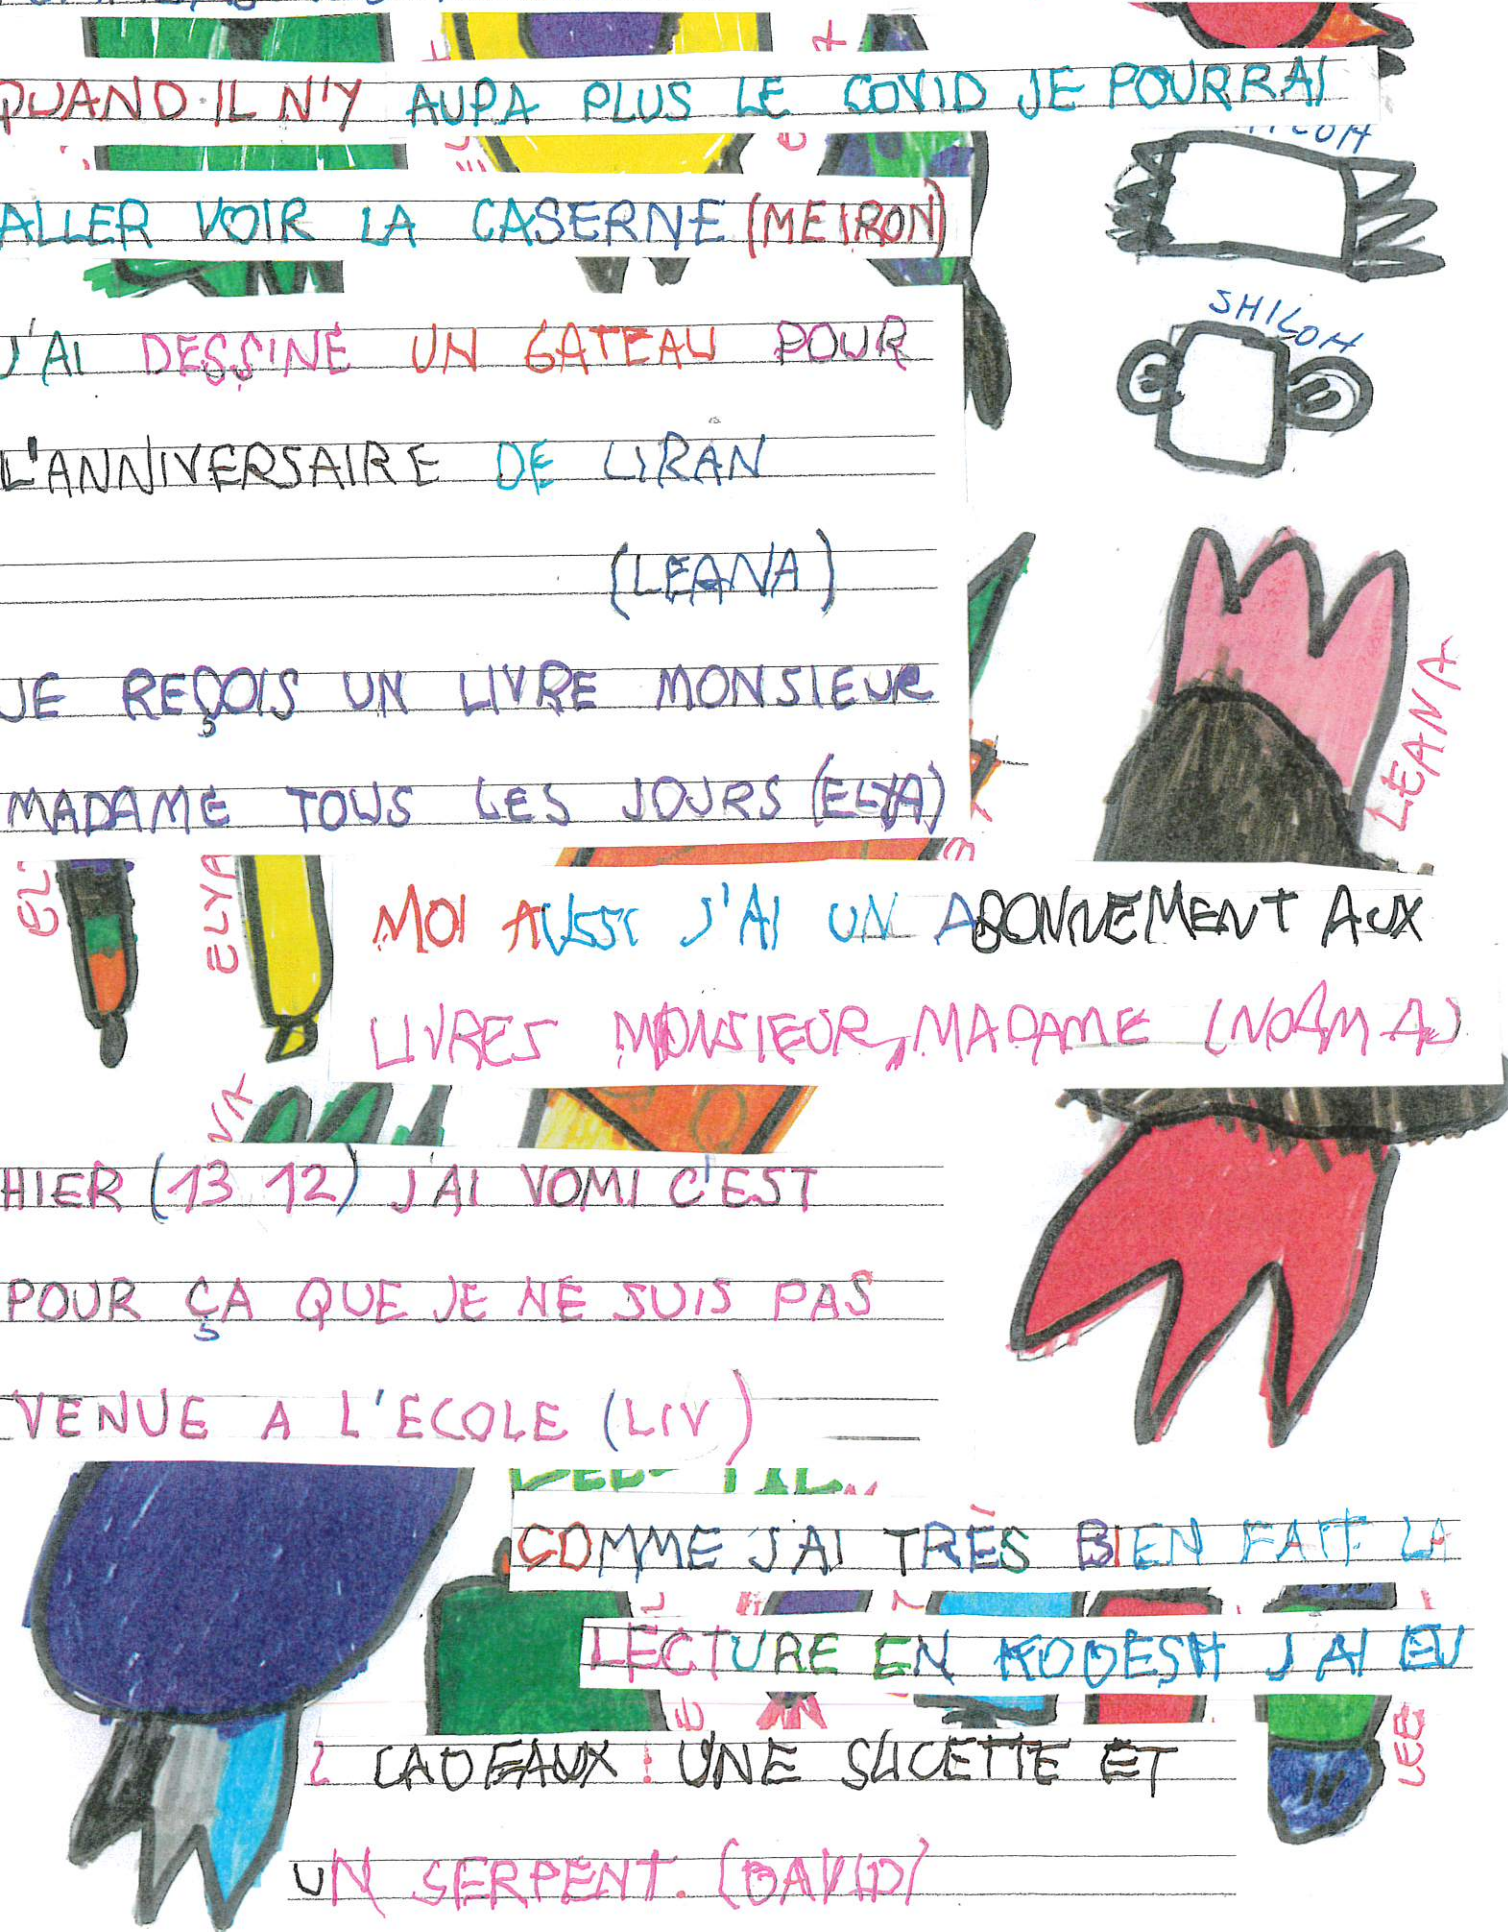 QUAND IL N'Y AURA PLUS LE COVID JE POURRAI
ALLER VOIR LA CASERNE (MEIRON)
SHILOH
J'AI DESSINÉ UN GATEAU POUR
L'ANNIVERSAIRE DE LIRAN
(LEANA)
LEANA
JE REÇOIS UN LIVRE MONSIEUR
MADAME TOUS LES JOURS (ELYA)
ELYA
MOI AUSSI J'AI UN ABONNEMENT AUX
LIVRES MONSIEUR, MADAME (NOAM A)
HIER (13 12) J'AI VOMI C'EST
POUR ÇA QUE JE NE SUIS PAS
VENUE A L'ECOLE (LIV)
COMME J'AI TRÈS BIEN FAIT LA
LECTURE EN KODESH J'AI EU
2 CADEAUX : UNE SUCETTE ET
LEE
UN SERPENT. (DAVID)